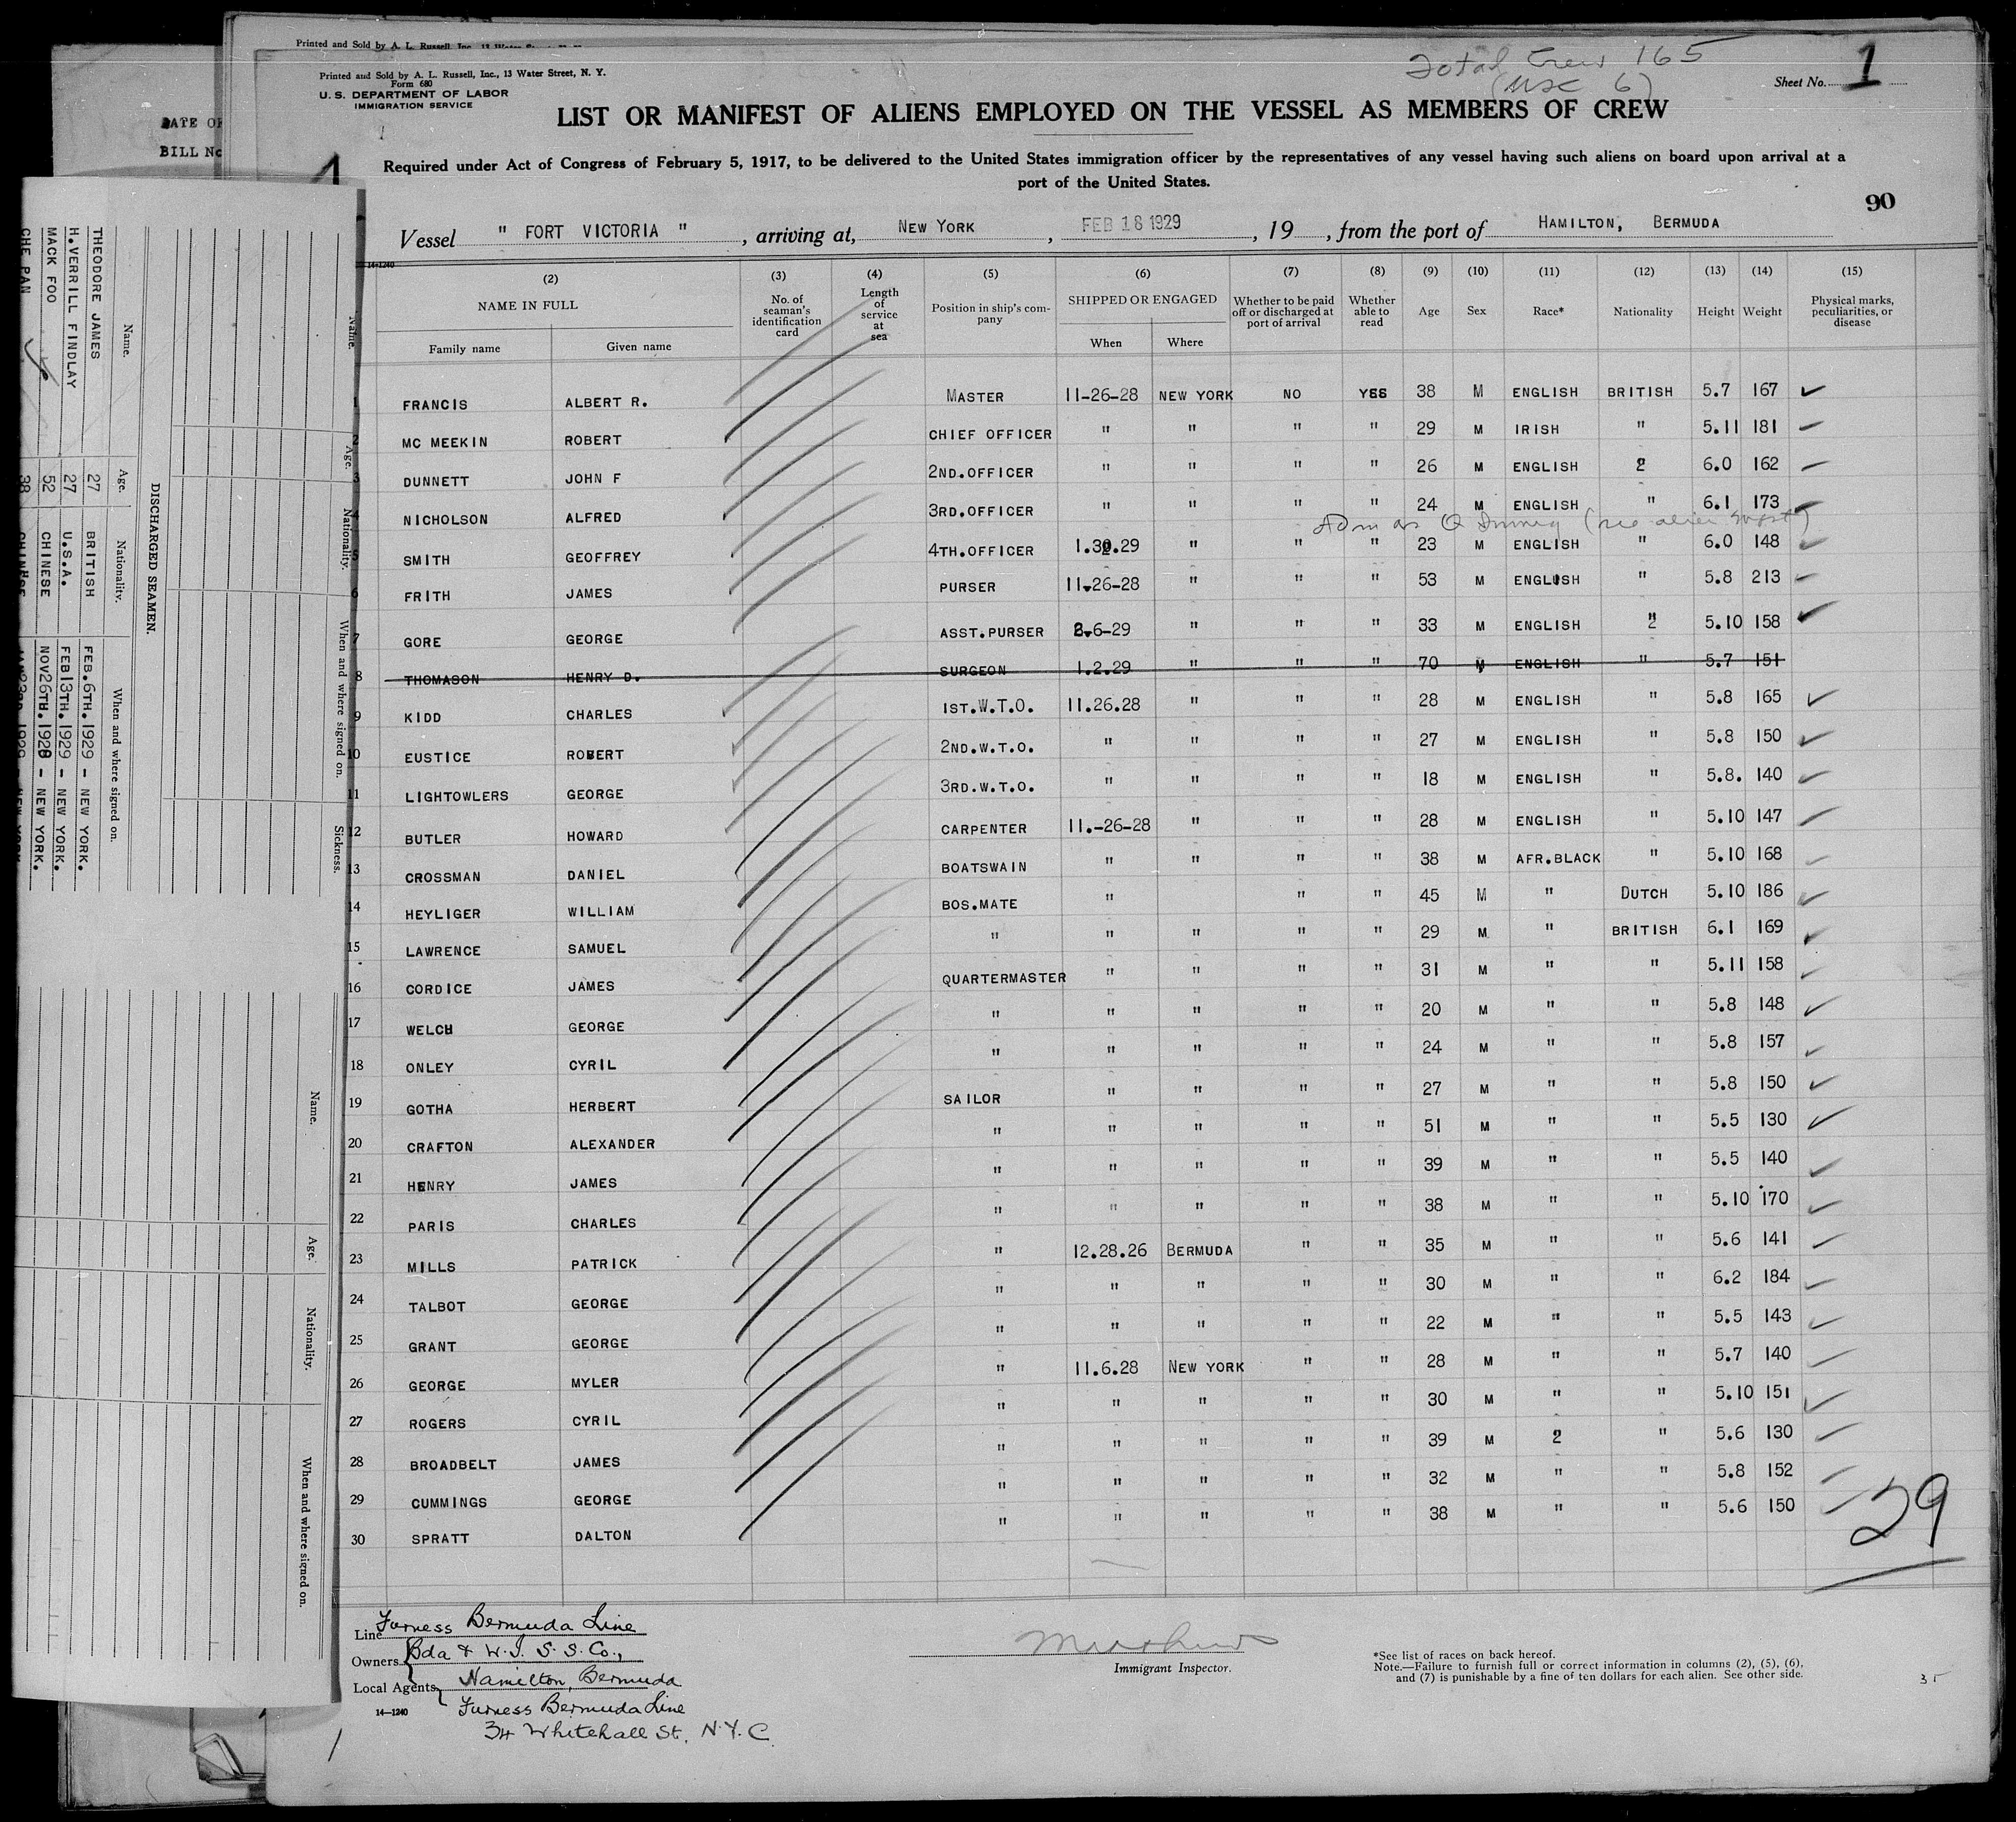 Printed and Sold by A. L. Russell, Inc.
Printed and Sold by A. L. Russell, Inc., 13 Water Street, N. Y.
Form 680
U. S. DEPARTMENT OF LABOR
IMMIGRATION SERVICE
Total Crew 165
(USC 6)
Sheet No. 1
LIST OR MANIFEST OF ALIENS EMPLOYED ON THE VESSEL AS MEMBERS OF CREW
Required under Act of Congress of February 5, 1917, to be delivered to the United States immigration officer by the representatives of any vessel having such aliens on board upon arrival at a
port of the United States.
90
Vessel " FORT VICTORIA " , arriving at, NEW YORK , FEB 18 1929 , 19 , from the port of HAMILTON, BERMUDA
14-1240
(2) (3) (4) (5) (6) (7) (8) (9) (10) (11) (12) (13) (14) (15)
NAME IN FULL No. of seaman's identification card Length of service at sea Position in ship's company SHIPPED OR ENGAGED Whether to be paid off or discharged at port of arrival Whether able to read Age Sex Race* Nationality Height Weight Physical marks, peculiarities, or disease
Family name Given name When Where
1 FRANCIS ALBERT R. MASTER 11-26-28 NEW YORK NO YES 38 M ENGLISH BRITISH 5.7 167
2 MC MEEKIN ROBERT CHIEF OFFICER " " " " 29 M IRISH " 5.11 181
3 DUNNETT JOHN F 2ND.OFFICER " " " " 26 M ENGLISH 2 6.0 162
4 NICHOLSON ALFRED 3RD.OFFICER " " " " 24 M ENGLISH " 6.1 173
5 SMITH GEOFFREY 4TH.OFFICER 1.30.29 " " " 23 M ENGLISH " 6.0 148
6 FRITH JAMES PURSER 11-26-28 " " " 53 M ENGLISH " 5.8 213
7 GORE GEORGE ASST.PURSER 2-6-29 " " " 33 M ENGLISH " 5.10 158
8 THOMASON HENRY D. SURGEON 1.2.29 " " " 70 M ENGLISH " 5.7 151
9 KIDD CHARLES 1ST.W.T.O. 11.26.28 " " " 28 M ENGLISH " 5.8 165
10 EUSTICE ROBERT 2ND.W.T.O. " " " " 27 M ENGLISH " 5.8 150
11 LIGHTOWLERS GEORGE 3RD.W.T.O. " " " " 18 M ENGLISH " 5.8. 140
12 BUTLER HOWARD CARPENTER 11.-26-28 " " " 28 M ENGLISH " 5.10 147
13 CROSSMAN DANIEL BOATSWAIN " " " " 38 M AFR.BLACK " 5.10 168
14 HEYLIGER WILLIAM BOS.MATE " " " 45 M " DUTCH 5.10 186
15 LAWRENCE SAMUEL " " " " " 29 M " BRITISH 6.1 169
16 CORDICE JAMES QUARTERMASTER " " " " 31 M " " 5.11 158
17 WELCH GEORGE " " " " " 20 M " " 5.8 148
18 ONLEY CYRIL " " " " " 24 M " " 5.8 157
19 GOTHA HERBERT SAILOR " " " " 27 M " " 5.8 150
20 CRAFTON ALEXANDER " " " " " 51 M " " 5.5 130
21 HENRY JAMES " " " " " 39 M " " 5.5 140
22 PARIS CHARLES " " " " " 38 M " " 5.10 170
23 MILLS PATRICK " 12.28.26 BERMUDA " " 35 M " " 5.6 141
24 TALBOT GEORGE " " " " " 30 M " " 6.2 184
25 GRANT GEORGE " " " " " 22 M " " 5.5 143
26 GEORGE MYLER " 11.6.28 NEW YORK " " 28 M " " 5.7 140
27 ROGERS CYRIL " " " " " 30 M " " 5.10 151
28 BROADBELT JAMES " " " " " 39 M 2 " 5.6 130
29 CUMMINGS GEORGE " " " " " 32 M " " 5.8 152
30 SPRATT DALTON " " " " " 38 M " " 5.6 150
29
Line Furness Bermuda Line
Owners Bda & W.I. S.S. Co.,
Hamilton, Bermuda
Local Agents Furness Bermuda Line
34 Whitehall St. N.Y.C.
14—1240
Immigrant Inspector.
*See list of races on back hereof.
Note.—Failure to furnish full or correct information in columns (2), (5), (6),
and (7) is punishable by a fine of ten dollars for each alien. See other side.
35
DATE OF
BILL No
DISCHARGED SEAMEN.
Name. Age. Nationality. When and where signed on.
THEODORE JAMES 27 BRITISH FEB.6TH.1929 - NEW YORK.
H.VERRILL FINDLAY 27 U.S.A. FEB 13TH.1929 - NEW YORK.
MACK FOO 52 CHINESE NOV26TH.1928 - NEW YORK.
CHE PAN 38 CHINESE
Name. Age. Nationality. When and where signed on. Sickness.
Name. Age. Nationality. When and where signed on.